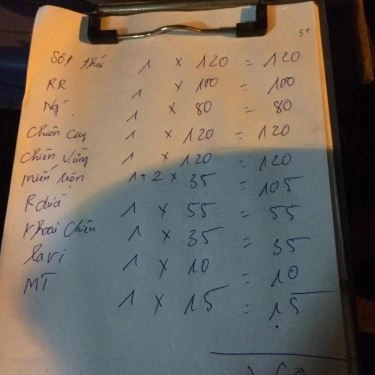 Sốt thái 1 x 120 = 120
RR 1 x 100 = 100
Ng. 1 x 80 = 80
Chiên Cay 1 x 120 = 120
Chiên Vừng 1 x 120 = 120
Miến trộn 1+2 x 35 = 105
R đuối 1 x 55 = 55
Khoai Chiên 1 x 35 = 35
Lavi 1 x 10 = 10
MT 1 x 15 = 15